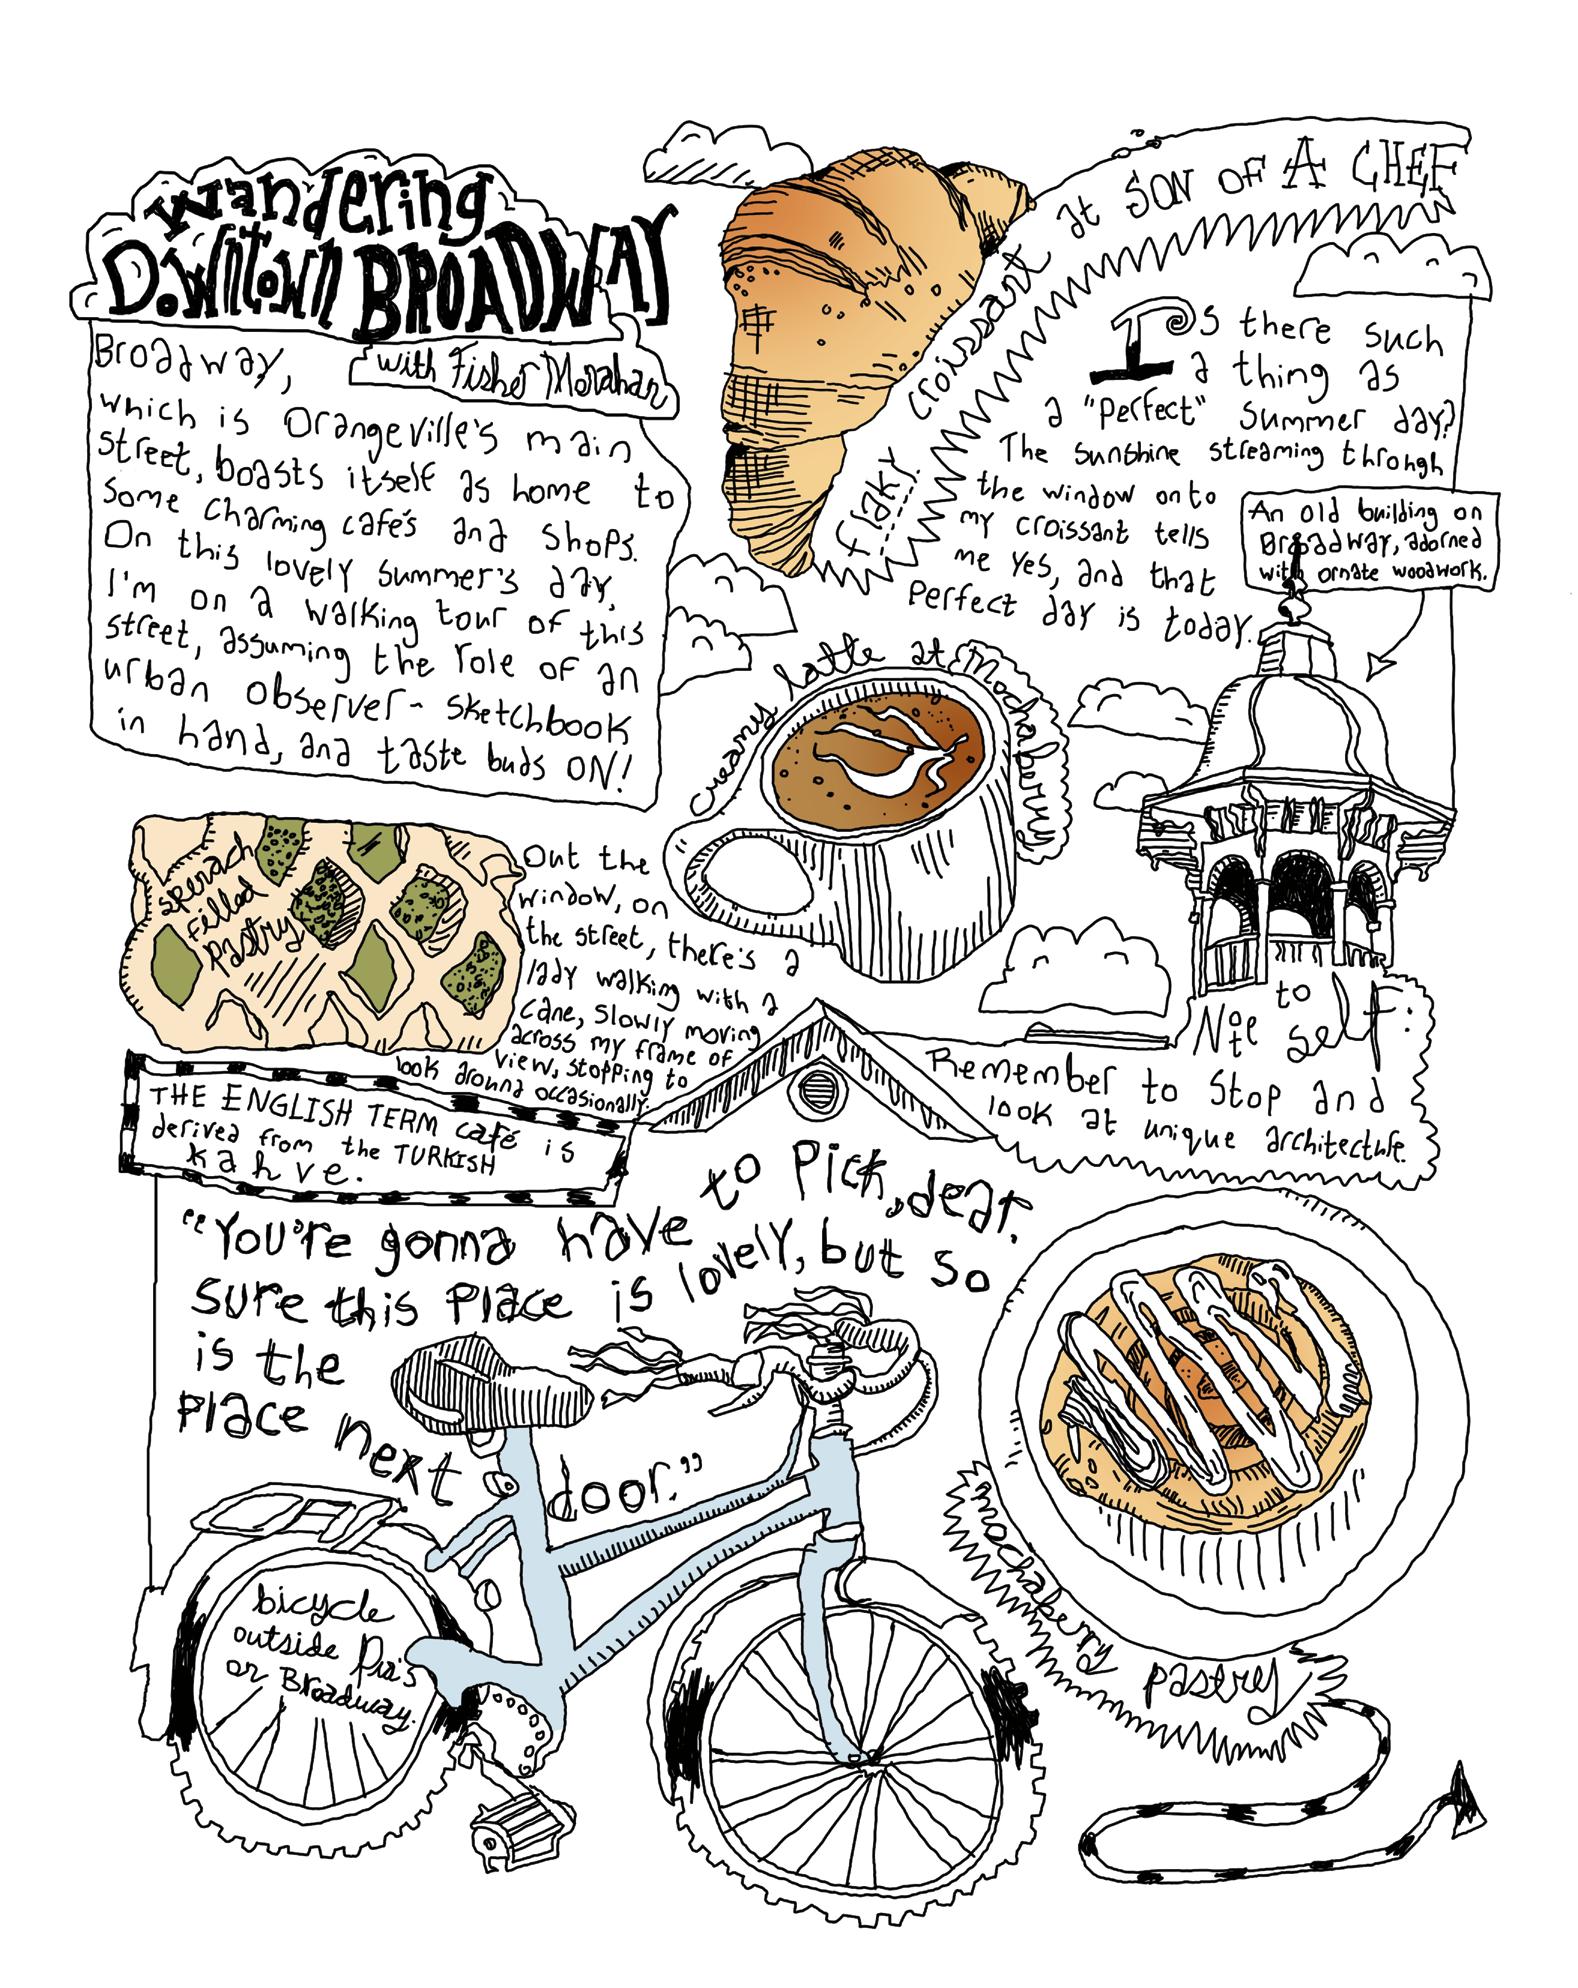 Wandering
Downtown BROADWAY
with Fisher Monahan
Broadway,
which is Orangeville's main
street, boasts itself as home to
some charming cafe's and shops.
On this lovely summer's day,
I'm on a walking tour of this
street, assuming the role of an
urban observer - sketchbook
in hand, and taste buds ON!
Flaky croissant at SON OF A CHEF
Is there such
a thing as
a "perfect" summer day?
The sunshine streaming through
the window onto
my croissant tells
me yes, and that
perfect day is today.
An old building on
Broadway, adorned
with ornate woodwork.
creamy latte at Mochaberry
spenach
filled
pastry
Out the
window, on
the street, there's a
lady walking with a
cane, slowly moving
across my frame of
view, stopping to
look around occasionally.
Note to self:
Remember to stop and
look at unique architecture.
THE ENGLISH TERM café is
derived from the TURKISH
kahve.
"You're gonna have to pick, dear.
Sure this place is lovely, but so
is the
place next door."
bicycle
outside Pia's
on Broadway.
mochaberry pastry